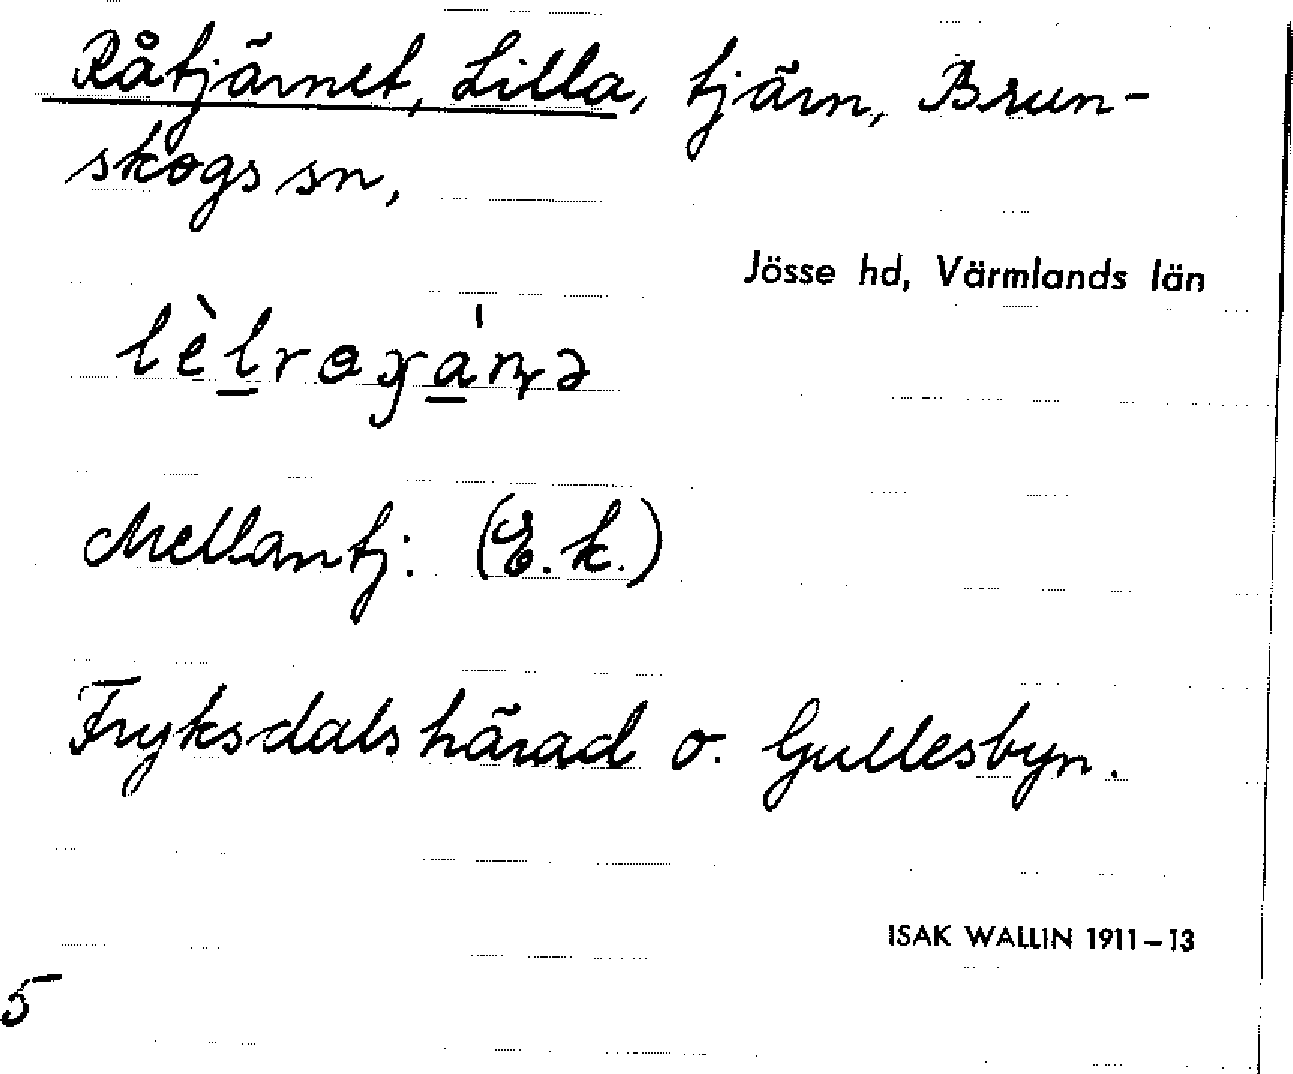 Råtjärnet, Lilla, tjärn, Brun-
skogs sn,
Jösse hd, Värmlands län
Mellantj: (E.k.)
Fryksdals härad o. Gullesbyn.
ISAK WALLIN 1911–13
5